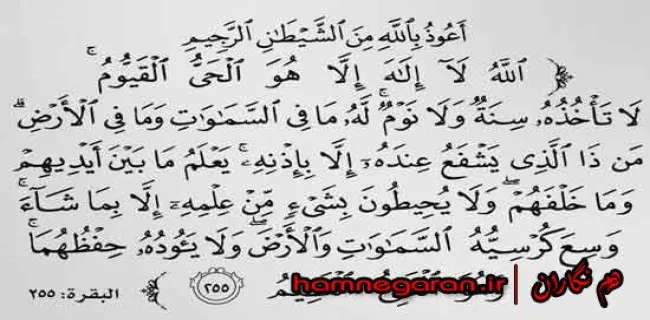 أَعُوذُ بِٱللَّهِ مِنَ ٱلشَّيْطَانِ ٱلرَّجِيمِ
ٱللَّهُ لَآ إِلَٰهَ إِلَّا هُوَ ٱلْحَىُّ ٱلْقَيُّومُ ۚ
لَا تَأْخُذُهُۥ سِنَةٌ وَلَا نَوْمٌ ۚ لَّهُۥ مَا فِى ٱلسَّمَٰوَٰتِ وَمَا فِى ٱلْأَرْضِ ۗ
مَن ذَا ٱلَّذِى يَشْفَعُ عِندَهُۥٓ إِلَّا بِإِذْنِهِۦ ۚ يَعْلَمُ مَا بَيْنَ أَيْدِيهِمْ
وَمَا خَلْفَهُمْ ۖ وَلَا يُحِيطُونَ بِشَىْءٍ مِّنْ عِلْمِهِۦٓ إِلَّا بِمَا شَآءَ ۚ
وَسِعَ كُرْسِيُّهُ ٱلسَّمَٰوَٰتِ وَٱلْأَرْضَ ۖ وَلَا يَـُٔودُهُۥ حِفْظُهُمَا ۚ
٢٥٥ البقرة: ٢٥٥
هم نگاران | hamnegaran.ir